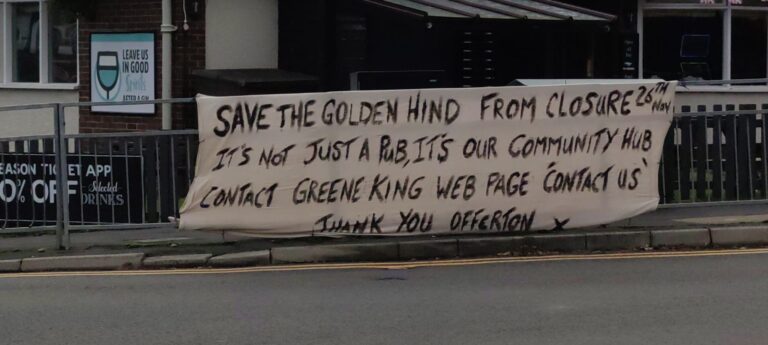 LEAVE US
IN GOOD
Spirits
AFTER A GIN
SAVE THE GOLDEN HIND FROM CLOSURE 26TH NOV
IT'S NOT JUST A PUB, IT'S OUR COMMUNITY HUB
CONTACT GREENE KING WEB PAGE 'CONTACT US'
THANK YOU OFFERTON X
EASON TICKET APP
0% OFF Selected
DRINKS